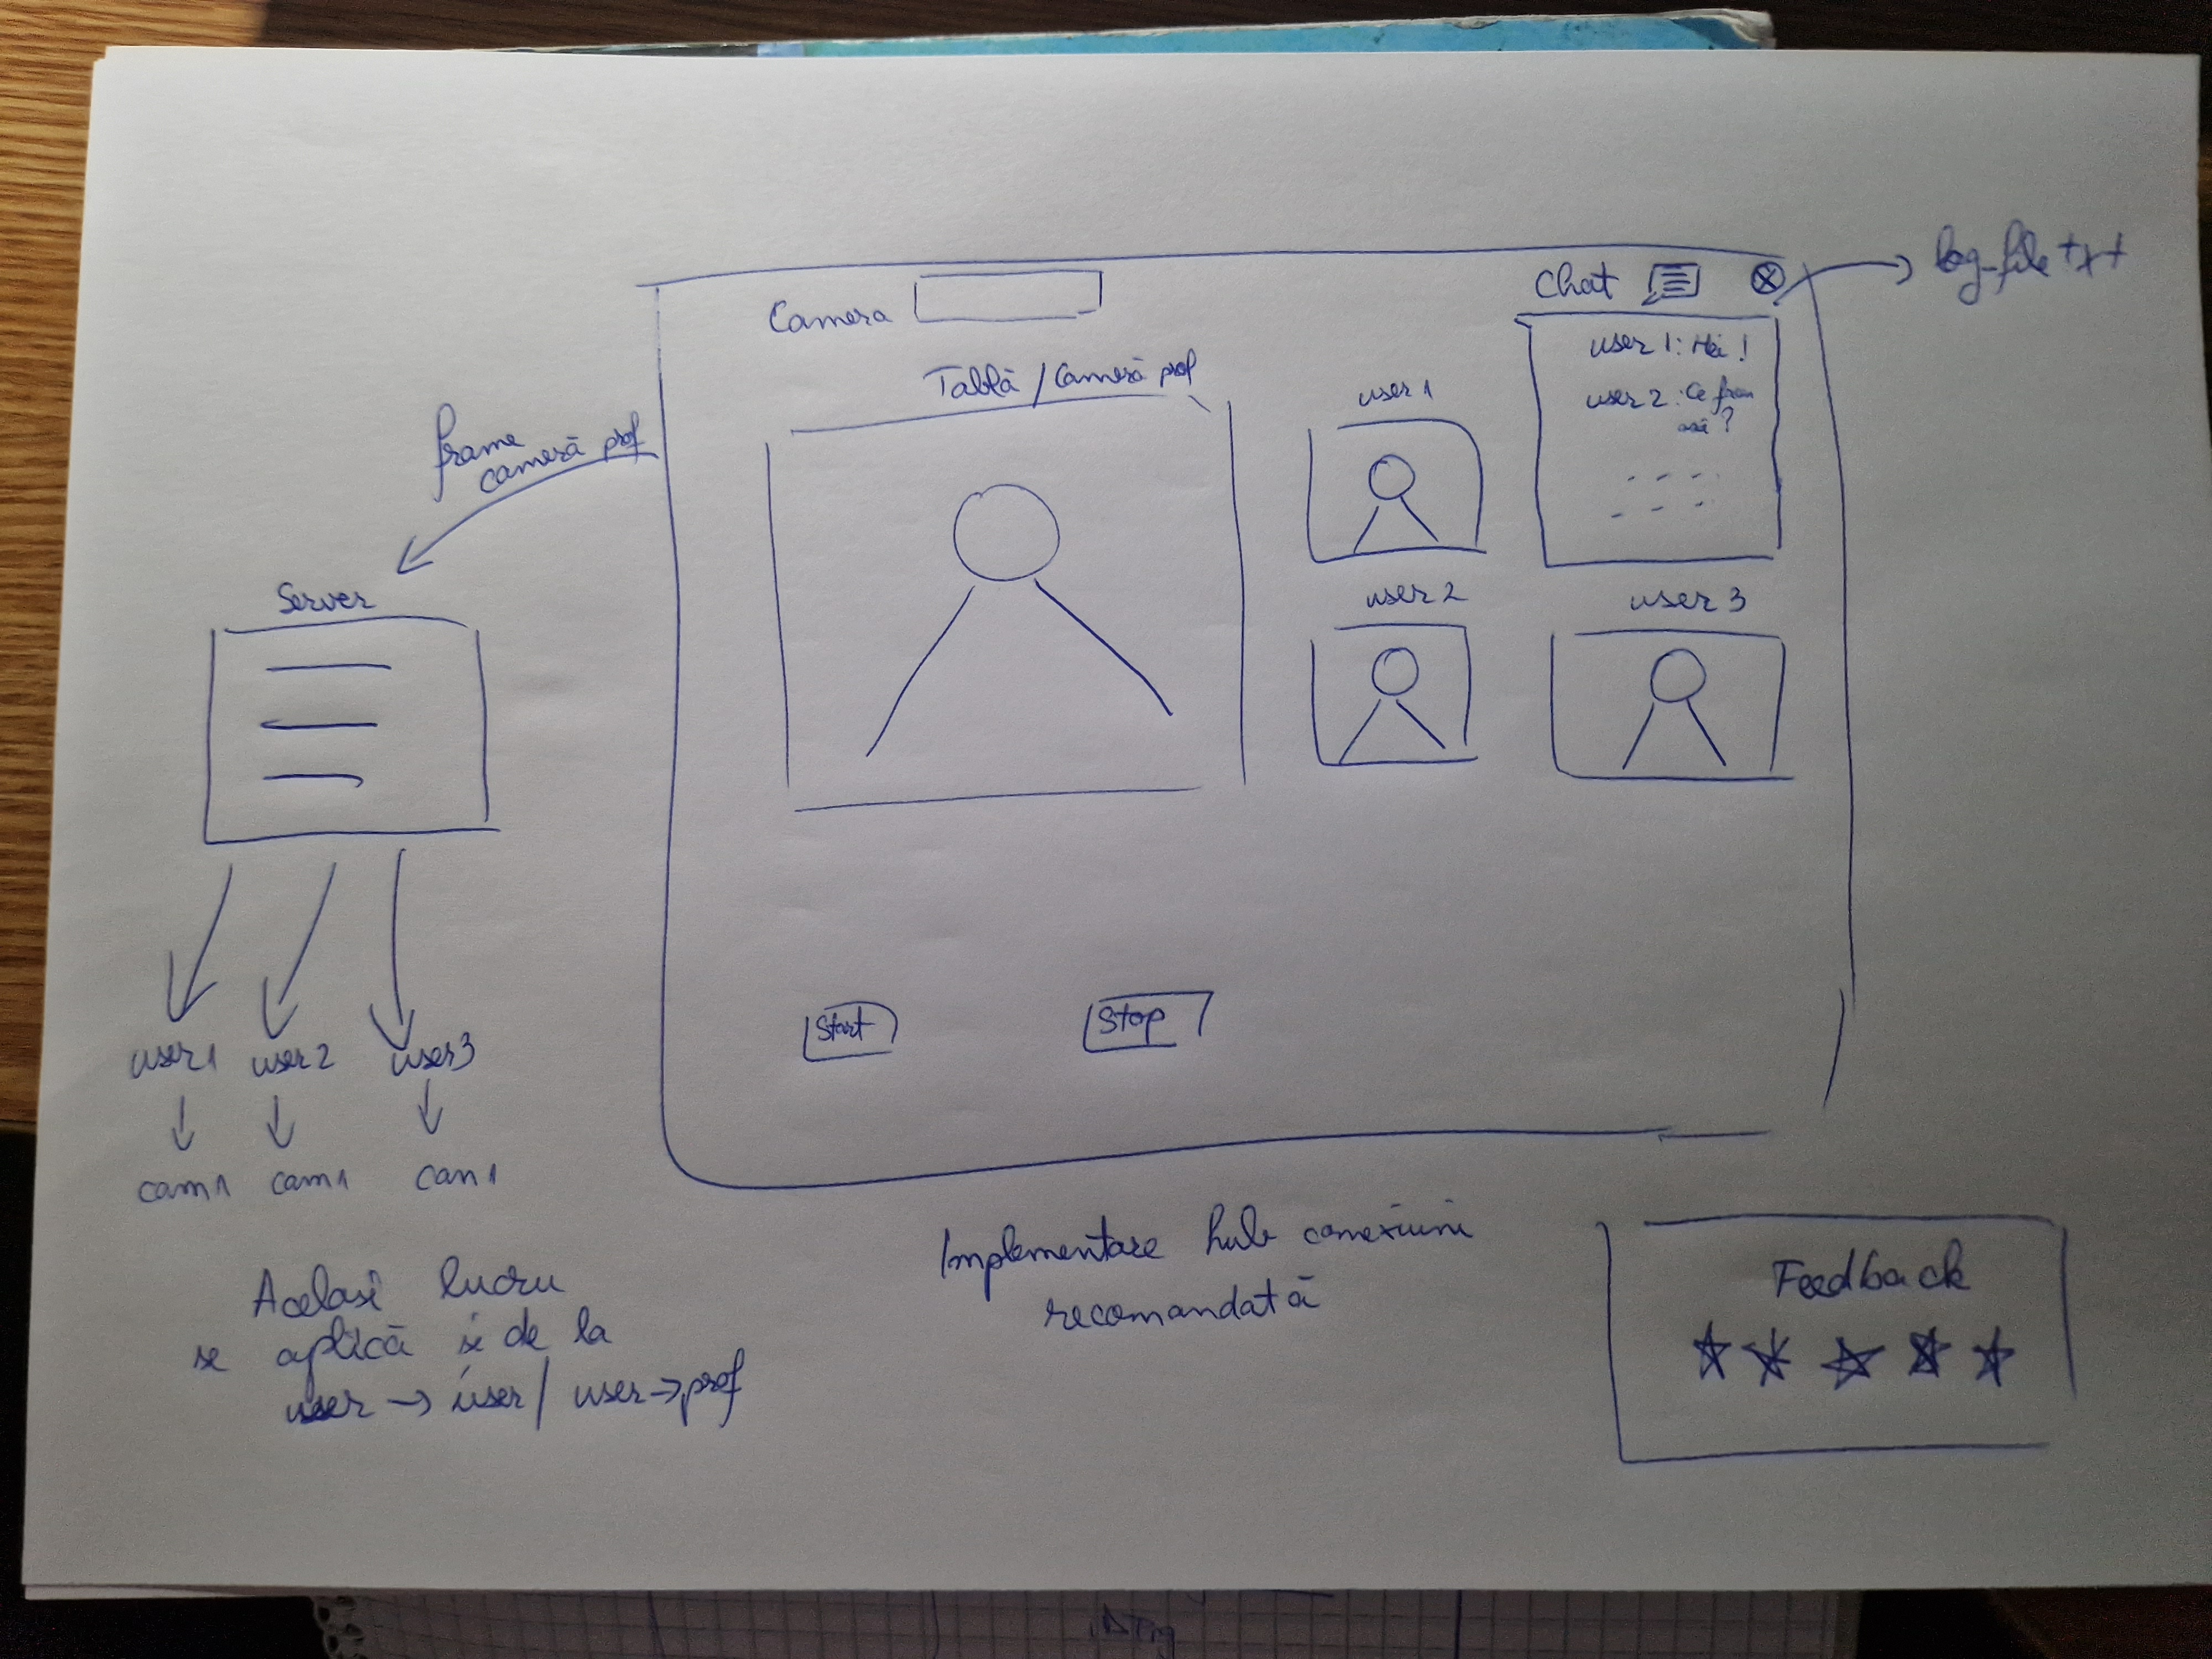 frame
cameră prof
Server
user1 user2 user3
cam1 cam1 cam1
Același lucru
se aplică și de la
user → user / user → prof
Camera
Tablă / Cameră prof
user 1
user 2
user 3
Chat
user 1: Hei!
user 2: Ce
log-file txt
Start
Stop
Implementare hub conexiuni
recomandată
Feedback